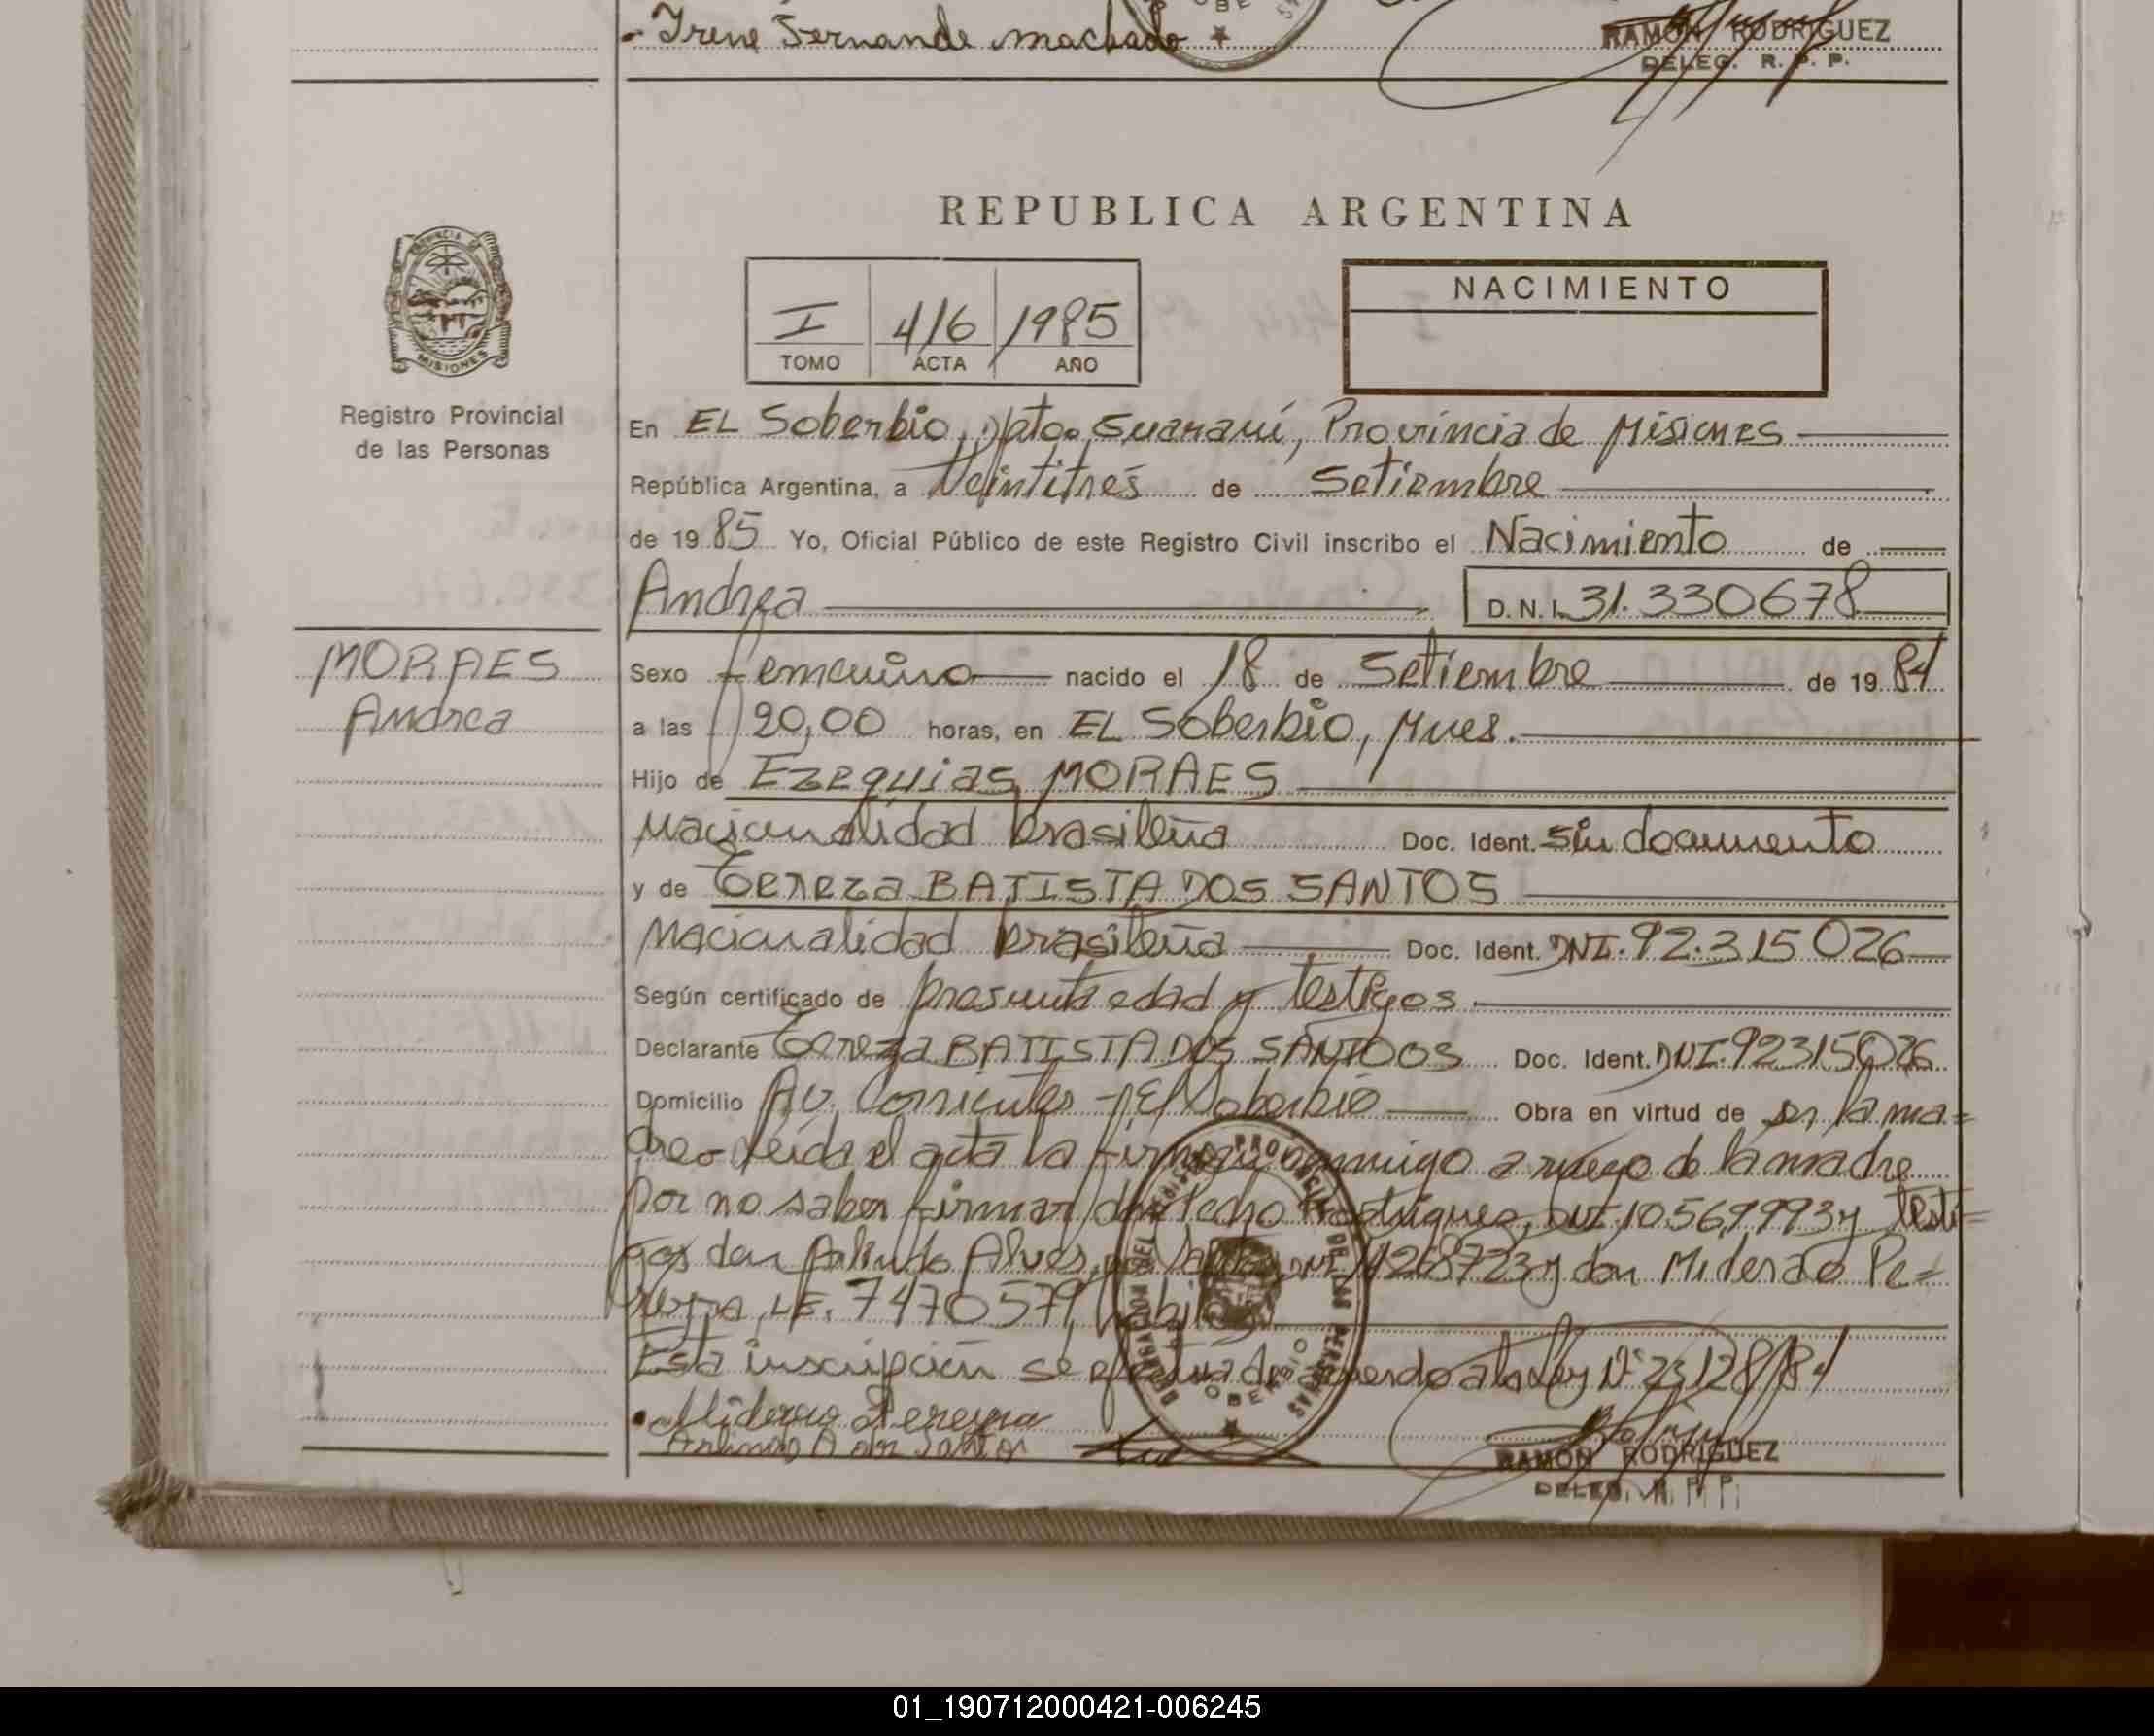 - Irene Fernande machado
RAMON RODRIGUEZ
DELEG. R. P. P.
REPUBLICA ARGENTINA
PROVINCIA DE
MISIONES
Registro Provincial
de las Personas
I 416 1985
TOMO ACTA AÑO
NACIMIENTO
En EL Soberbio, Dpto. Guaraní, Provincia de Misiones
República Argentina, a Veintitrés de Setiembre
de 1985 Yo, Oficial Público de este Registro Civil inscribo el Nacimiento de
Andrea D.N.I. 31.330678
MORAES
Andrea
Sexo femenino nacido el 18 de Setiembre de 1984
a las 20,00 horas, en EL Soberbio, Mnes.
Hijo de Ezequias MORAES
Nacionalidad brasileña Doc. Ident. sin documento
y de Tereza BATISTA DOS SANTOS
Nacionalidad brasileña Doc. Ident. DNI. 92.315026
Según certificado de presunta edad y testigos
Declarante Tereza BATISTA DOS SANTOOS Doc. Ident. DNI. 92315026
Domicilio Av. Corrientes - El Soberbio Obra en virtud de ser la ma=
dre Leída el acta la firma conmigo a ruego de la madre
por no saber firmar don Pedro Rodrigues, DNI. 10.5699993 y testi=
gos don Arlindo Alves dos Santos, DNI 14268723 y don Miderao Pe=
reyra, LE. 7470579, hábiles
Esta inscripción se efectúa de acuerdo a la Ley Nº 23128/84
Miderao Pereyra
Arlindo A dos Santos
DELEGACION DEL REGISTRO PROVINCIAL DE LAS PERSONAS
SOBERBIO
RAMON RODRIGUEZ
DELEG. R. P. P.
01_190712000421-006245